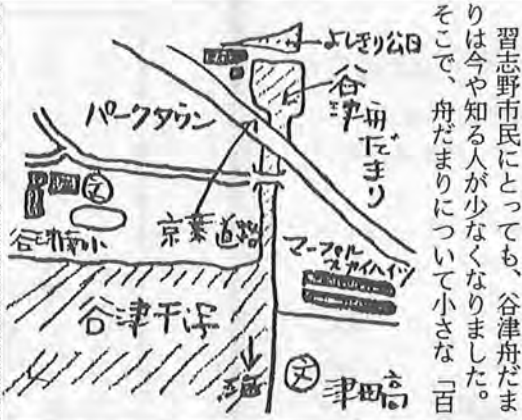 習志野市民にとっても、谷津舟だま
りは今や知る人が少なくなりました。
そこで、舟だまりについて小さな「百
よしきり公田
谷津舟だまり
パークタウン
京葉道路
文
谷津南小
マーブル
スカイハイツ
谷津干潟
文
津田高